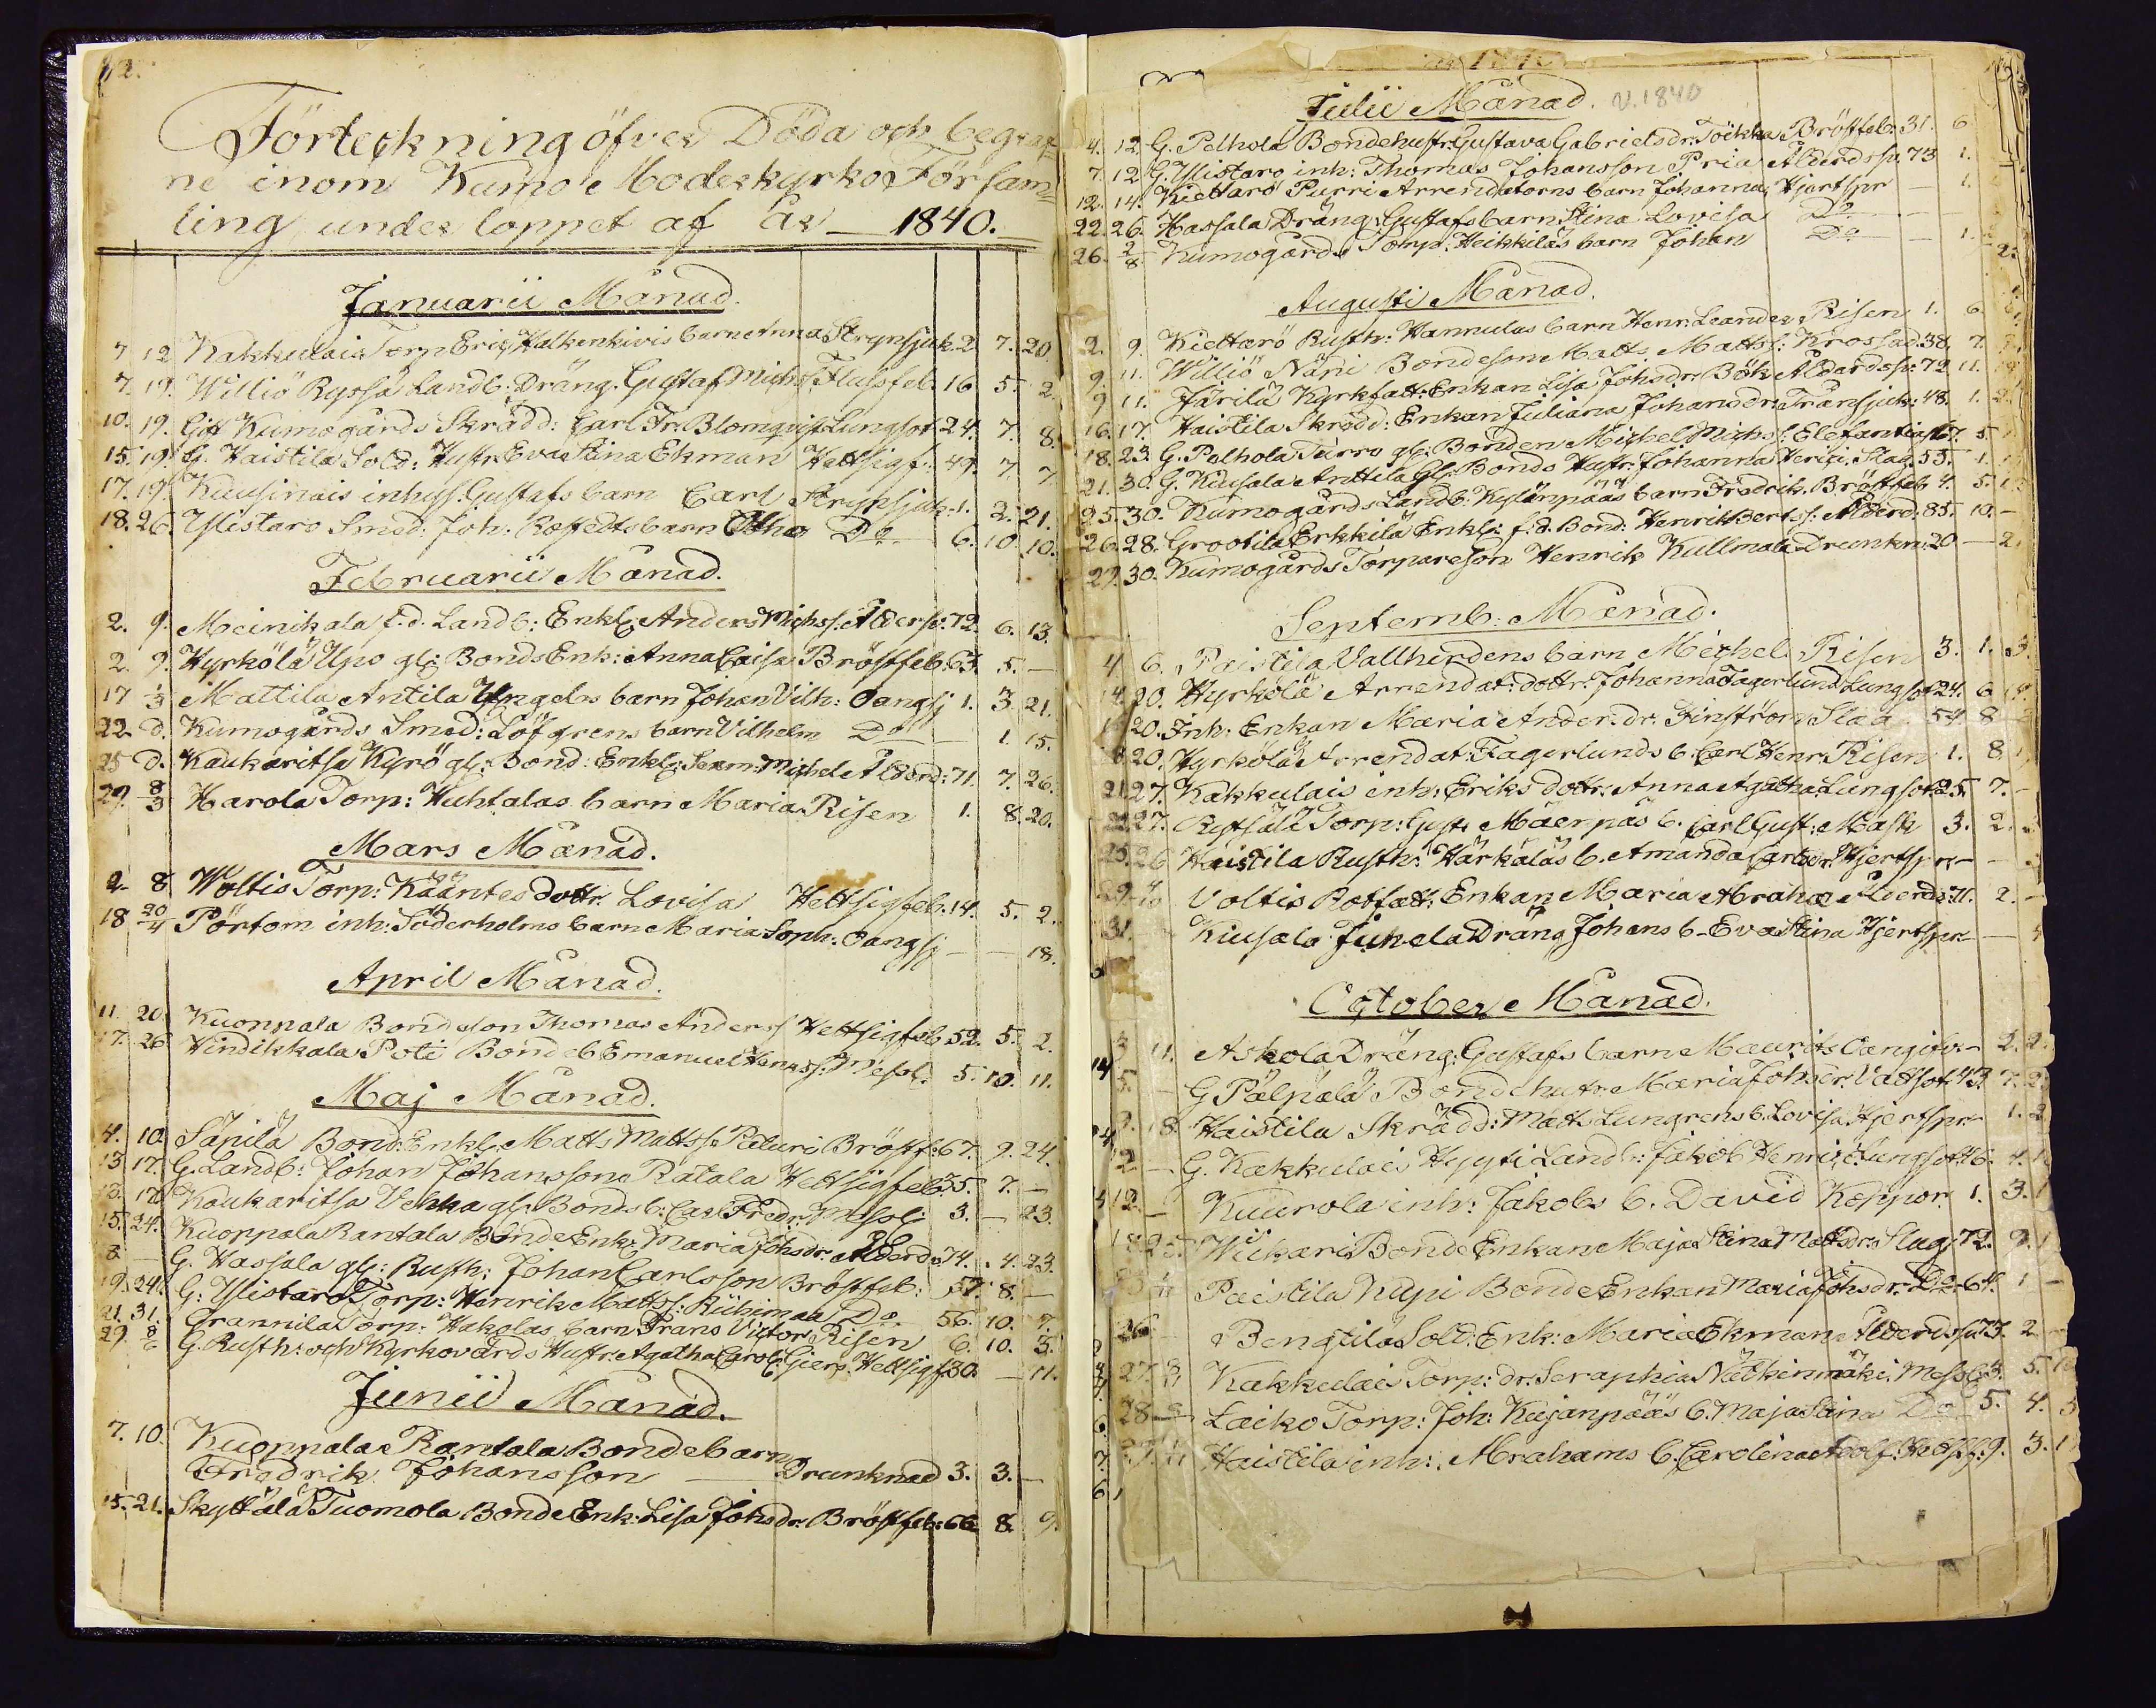 Förteckning öfver Döda och begraf=
ne inom Kumo Moderkyrko Försam=
ling under loppet af år 1840.
Januarii Månad.
7 12 Kakkulais Torp Eric Halkenkivis barn Anna Strypsjuk. 2 7. 20.
7. 19. Williö Ryssä Landb. Dräng. Gustaf Michs. Flussfeb. 16 5. 2.
10. 19. Gift Kumogårds Skrädd: Carl Fr. Blomqvist Lungsot 24. 7. 8.
15. 19. G. Haistila Sold: Hustr. Eva Stina Ekman Hettsigf: 49. 7. 7.
17. 19. Kuusinais inhys. Gustafs barn Carl Strypsjuk. 1. 2. 21.
18. 26. Ylistaro Smed. Joh: barn Otho Do 6. 10. 10.
Februarii Månad.
2. 9. Meinikala f.d. Landb: Enkl. Anders Michss. Ålders: 72. 6. 13.
2. 9. Hyrkölä Upo gl: Bonds Enk: Anna Caisa Bröstfeb. 63. 5. —
17 1/3 Mattila Antila barn Johan Vilh: Oangsj 1. 3 21.
22 d. Kumogårds Smed: Löfgrens barn Vilhelm Do — 1. 15.
25 d. Kaukaritsa Kyrö gl: Bond: Enkl: Michel Ålderd: 71. 7. 26.
29. 8/3 Harola Torp: Huhtalas barn Maria Risen 1. 8. 20.
Mars Månad.
2 8 Woltis Torp: Kääntes dottr. Lovisa Hettsigfeb. 14. 5. 2.
18 20/4 Pörtom inh: Söderholms barn Maria Soph: Oangsj — — 18.
April Månad.
11. 20. Kuoppala Bondeson Thomas Anderss Hettsigfeb 52. 5. 2.
17. 26 Hindikkala Poti Bondeb Emanuel Henrss. Messl. 5. 10. 11.
Maj Månad.
4. 10. Sänilä Bond: Enkl. Matts Mattss. Paturi Bröstf: 67. 9. 24.
13 17. G. Landb: Johan Johanssons Ratala Hettsigfeb. 35. 7. —
13. 17. Kaukaritsa Vehka gl: Bonds b: Carl Fredr. Messl: 3. — 23.
15. 24. Kuoppala Rantala Bonde Enk: Maria Johsdr. Ålderds 74. 4. 23.
8 — G. Hassala gl: Rusth: Johan Carlsson Bröstfeb: 57. 8. —
19. 24. G: Ylistaro Torp: Henrik Mattss: Riihimaa Do 56. 10. 7.
21. 31. Grannila Torp: Hakolas barn Frans Victor Risen 6. 10. 3.
29. 8/6 G. Rusth: och Kyrkovärds Hustr. Agatha Carol: Giers. Hettsigf 30. — 11.
Junii Månad.
7. 10. Kuoppala Rantala Bondebarn
Fredrik Johansson — Drunknad 3. 3. —
15. 21. Skyttälä Tuomola Bonde Enk: Lisa Johsdr. Bröstfeb: 66 8. 9.
Julii Månad. V. 1840
4. 12 G. Pelhola Bondehustr. Gustava Gabrielsdr. Töikka Bröstfeb: 31. 6
7. 12 G. Ylistaro inh: Thomas Johansson Pria Ålderdsv. 73 1.
12. 14. Kiettarö Purri Arrendatorns barn Johanna Hjertspr — 1.
22 26. Hassala Dräng: Gustafs barn Stina Lovisa Do —
26. 2/8 Kumogårds Torp: Heikkiläs barn Johan Do — 1. 2.
Augusti Månad.
2. 9. Kiettarö Rusth: Hannulas barn Henr. Leander Risen 1. 6.
9. 11. Williö Näri Bondeson Matts Mattss: Krossad 38. 7.
9 11. Järilä Kyrkfatt: Enkan Lisa Johsdr. Bök Ålderdsv: 72. 11.
16. 17. Haistila Skrädd: Enkan Juliana Johansdr: Transjuk: 48. 1. 2
18. 23. G. Polhola Turro gl: Bonden Michel Michss: Elefantias 67. 5.
21. 30. G. Kiusala Anttila Gl: Bonds Hustr. Johanna Henr. Slag. 53. 1.
25. 30. Kumogårds Landb: Kylänpääs barn Fredrik. Bröstfeb 4. 5.
26. 28. Grootila Erkkilä Enkl: f.d. Bond: Henrik Bertss: Ålderd. 85. 10. —
29. 30. Kumogårds Torpareson Henrik Kullmala Drunkn: 20 — 2.
Septemb: Månad.
4 6. Paistila Vallherdens barn Michel Risen 3. 1. 3.
14. 20. Hyrkölä Arrendat: dottr. Johanna Fagerlund Lungsot 24. 6
20. Inh: Enkan Maria Ander.dr. Finström Slag 54. 8
8 20. Hyrkölä Arrendat: Fagerlunds b. Carl Henr. Risen 1. 8
21 27. Kakkulais inh: Eriks dottr. Anna Agatha Lungsot 25. 7.
27. Torp: Gust. Mäenpäs b. Carl Gust: Mask 3. 2.
25. 26 Haistila Rusth: Härkäläs b. Amanda Carlsdr. Hjertspr —
Voltis Rotfatt: Enkan Maria Abraha Ålderds: 71. 2. —
31. Kiusala Juhela Dräng Johans b. Eva Stina Hjertspr — 4
October Månad.
3 11. Askola Dräng: Gustafs barn Maurits Oangifv — 2. 2
5. — G Pälpälä Bondehustr. Maria Johsdr. Vattsot 43. 7. 2
9. 18. Haistila Skrädd: Matts Lungrens b. Lovisa Hjertspr — 1. 2
12 — G. Kakkulais Hyyti Landb: Jakob Henrics: Lungsot 46. 4.
12. — Kuurola inh: Jakobs b. David Koppor. 1. 3.
18. 25. Wiikari Bonde Enkan Maja Stina Mattsdr. Slag 72. 9.
Paistila Nupi Bonde Enkan Maria Johsdr. Do 64. 1 —
26 Bengtilä Sold: Enk: Maria Ekman Ålderdsv 73. 2
27. Kakkulais Torp: dr. Seraphia Messl. 3. 5.
28 Laiko Torp: Joh: Kujanpääs b. Maja Stina Do 5. 4. 3
Haistila inh: Abrahams b. Carolina Adolf. Hettsf: 9. 3. 1